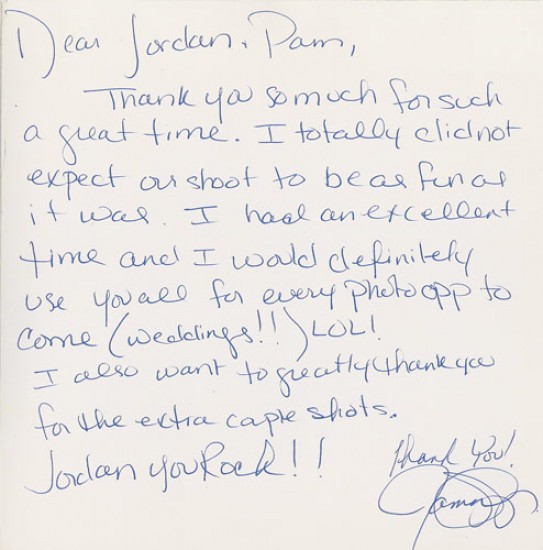 Dear Jordan + Pam,
Thank you so much for such
a great time. I totally did not
expect our shoot to be as fun as
it was. I had an excellent
time and I would definitely
use you all for every photo opp to
come (weddings!!) LOL!
I also want to greatly thank you
for the extra shots.
Jordan you Rock!!
Thank You!